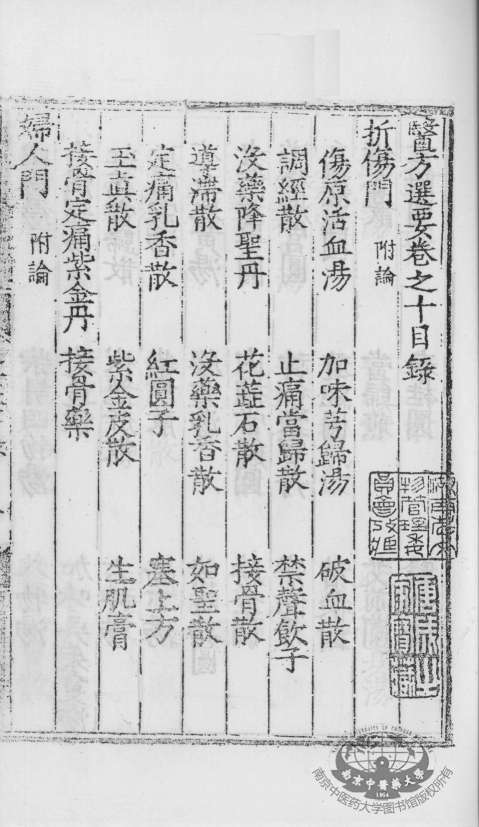 醫方選要卷之十目錄
折傷門 附論
傷原活血湯 加味芎歸湯 破血散
調經散 止痛當歸散 禁聲飲子
沒藥降聖丹 花蕋石散 接骨散
導滯散 沒藥乳香散 如聖散
定痛乳香散 紅圓子 塞上方
玉眞散 紫金皮散 生肌膏
接骨定痛紫金丹 接骨藥
婦人門 附論
南京中醫藥大學
1954
南京中医药大学图书馆版权所有